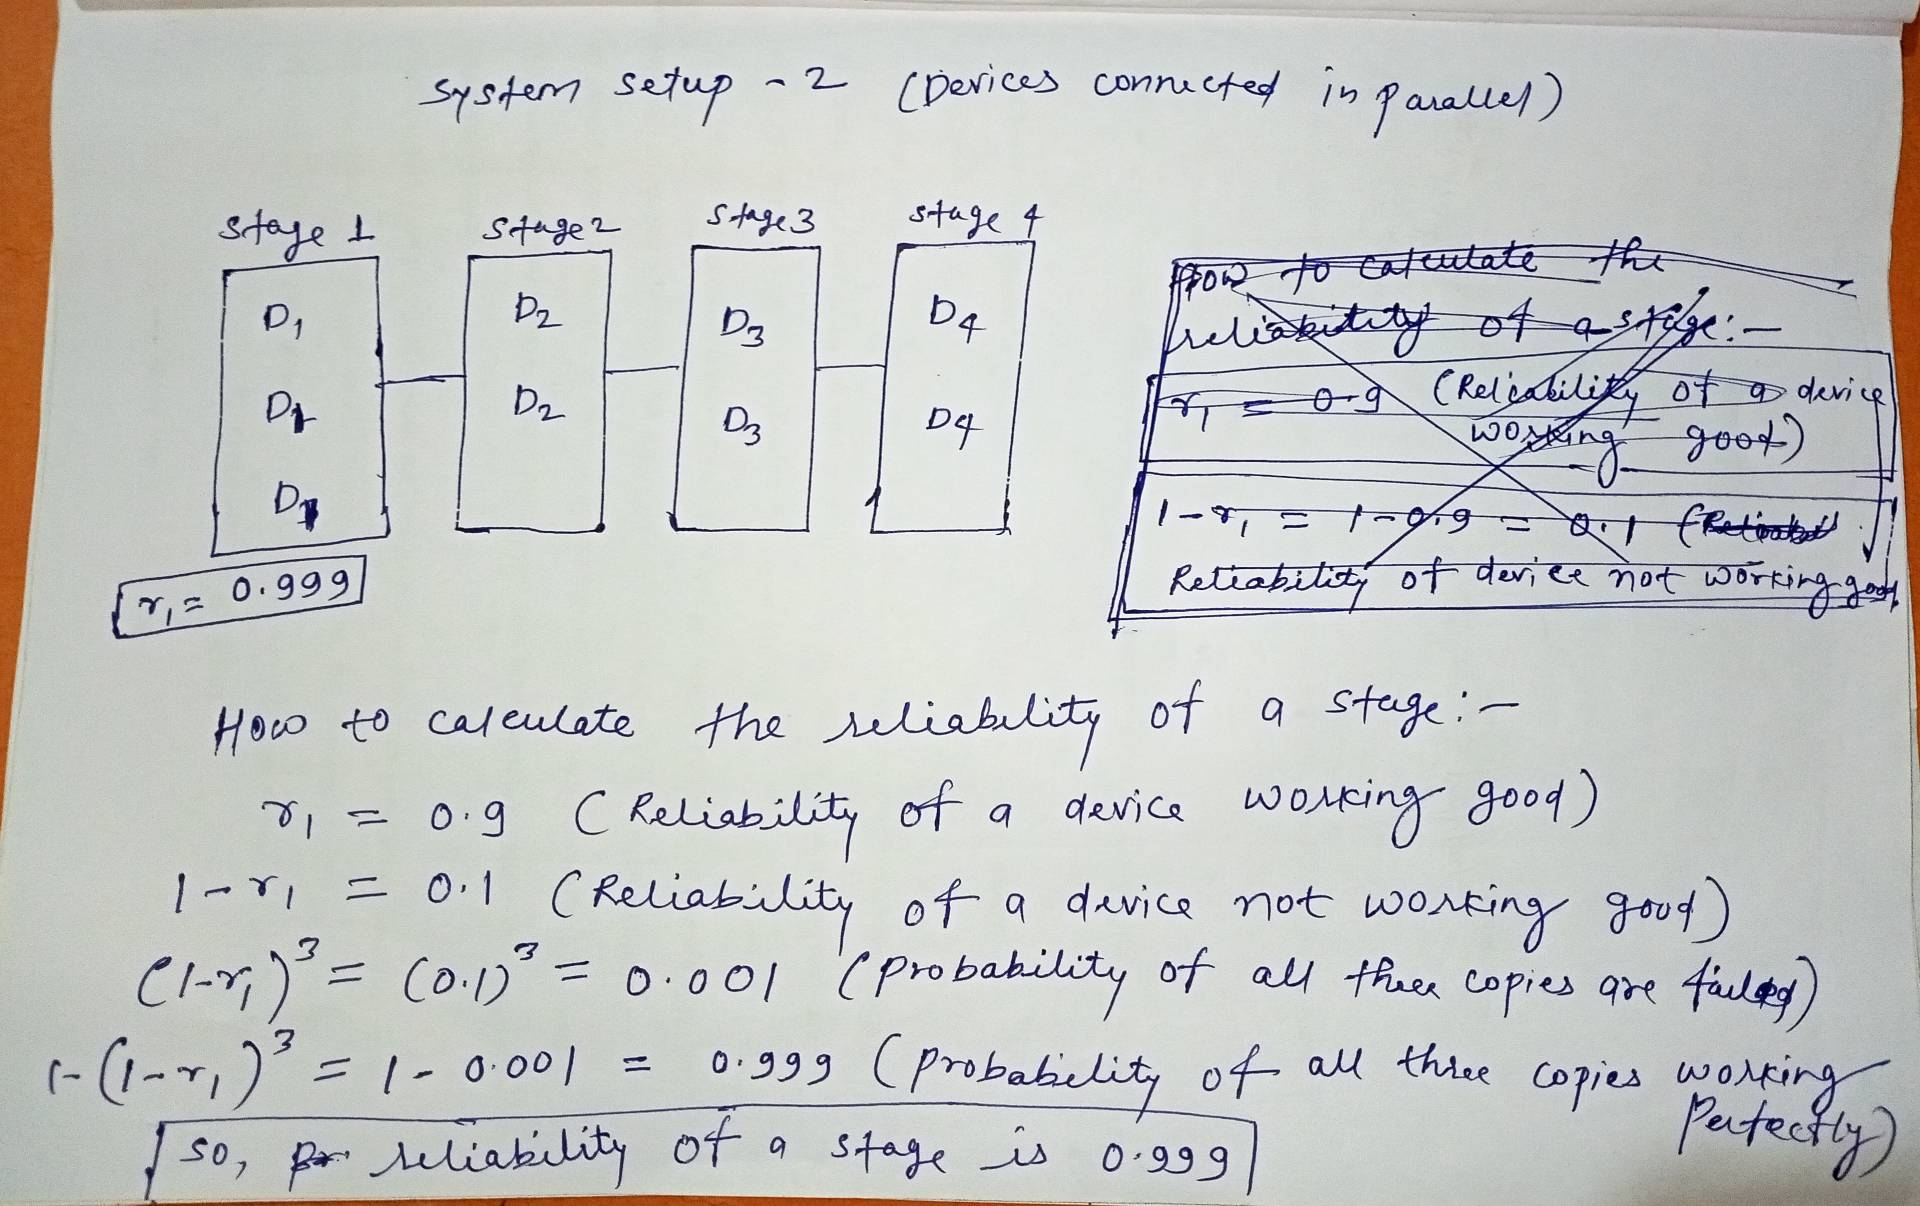 System setup - 2 (Devices connected in parallel)
Stage 1 Stage 2 Stage 3 Stage 4
D₁ D₂ D₃ D₄
D₁ D₂ D₃ D₄
D₁
r₁ = 0.999
How to calculate the
reliability of a stage:-
r₁ = 0.9 (Reliability of a device
working good)
1-r₁ = 1-0.9 = 0.1 (
Reliability of device not working good
How to calculate the reliability of a stage:-
r₁ = 0.9 (Reliability of a device working good)
1-r₁ = 0.1 (Reliability of a device not working good)
(1-r₁)³ = (0.1)³ = 0.001 (probability of all three copies are failed)
1-(1-r₁)³ = 1-0.001 = 0.999 (probability of all three copies working
Perfectly)
so, reliability of a stage is 0.999